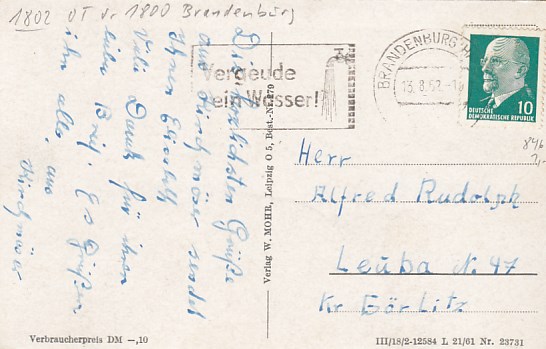 1802 OT v. 1800 Brandenburg
Die herzlichsten Grüße
aus Kirchmöser sendet
Ihnen
Viele Dank für Ihren
lieben Brief. Es Grüßen
ihn alle, aus
Kirchmöser
Vergeude
kein Wasser!
BRANDENBURG (HA
13.8.62-1
DEUTSCHE
DEMOKRATISCHE REPUBLIK
10
846
2,-
Herr
Alfred Rudolph
Leuba N. 47
Kr Görlitz
Verlag W. MOHR, Leipzig O 5, Best.-Nr. 279
Verbraucherpreis DM -,10
III/18/2-12584 L 21/61 Nr. 23731